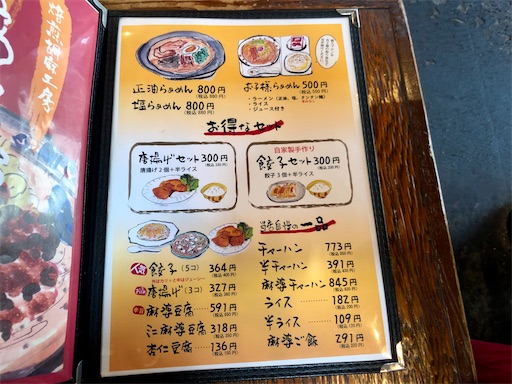 正油らぁめん 800円
(税込 880円)
塩らぁめん 800円
(税込 880円)
お子様らぁめん 500円
(税込 550円)
・ラーメン(正油、塩、タンタン麺)
・ライス
・ジュース付き
お得なセット
唐揚げセット 300円
(税込 330円)
唐揚げ2個+半ライス
自家製手作り
餃子セット 300円
(税込 330円)
餃子3個+半ライス
当店自慢の一品
人気 餃子(5コ) 364円
(税込 400円)
外はカリッと中はジューシー
唐揚げ(3コ) 327円
(税込 360円)
麻婆豆腐 591円
(税込 650円)
ミニ麻婆豆腐 318円
(税込 350円)
杏仁豆腐 136円
(税込 150円)
チャーハン 773円
(税込 850円)
半チャーハン 391円
(税込 430円)
麻婆チャーハン 845円
(税込 930円)
ライス 182円
(税込 200円)
半ライス 109円
(税込 120円)
麻婆ご飯 291円
(税込 320円)